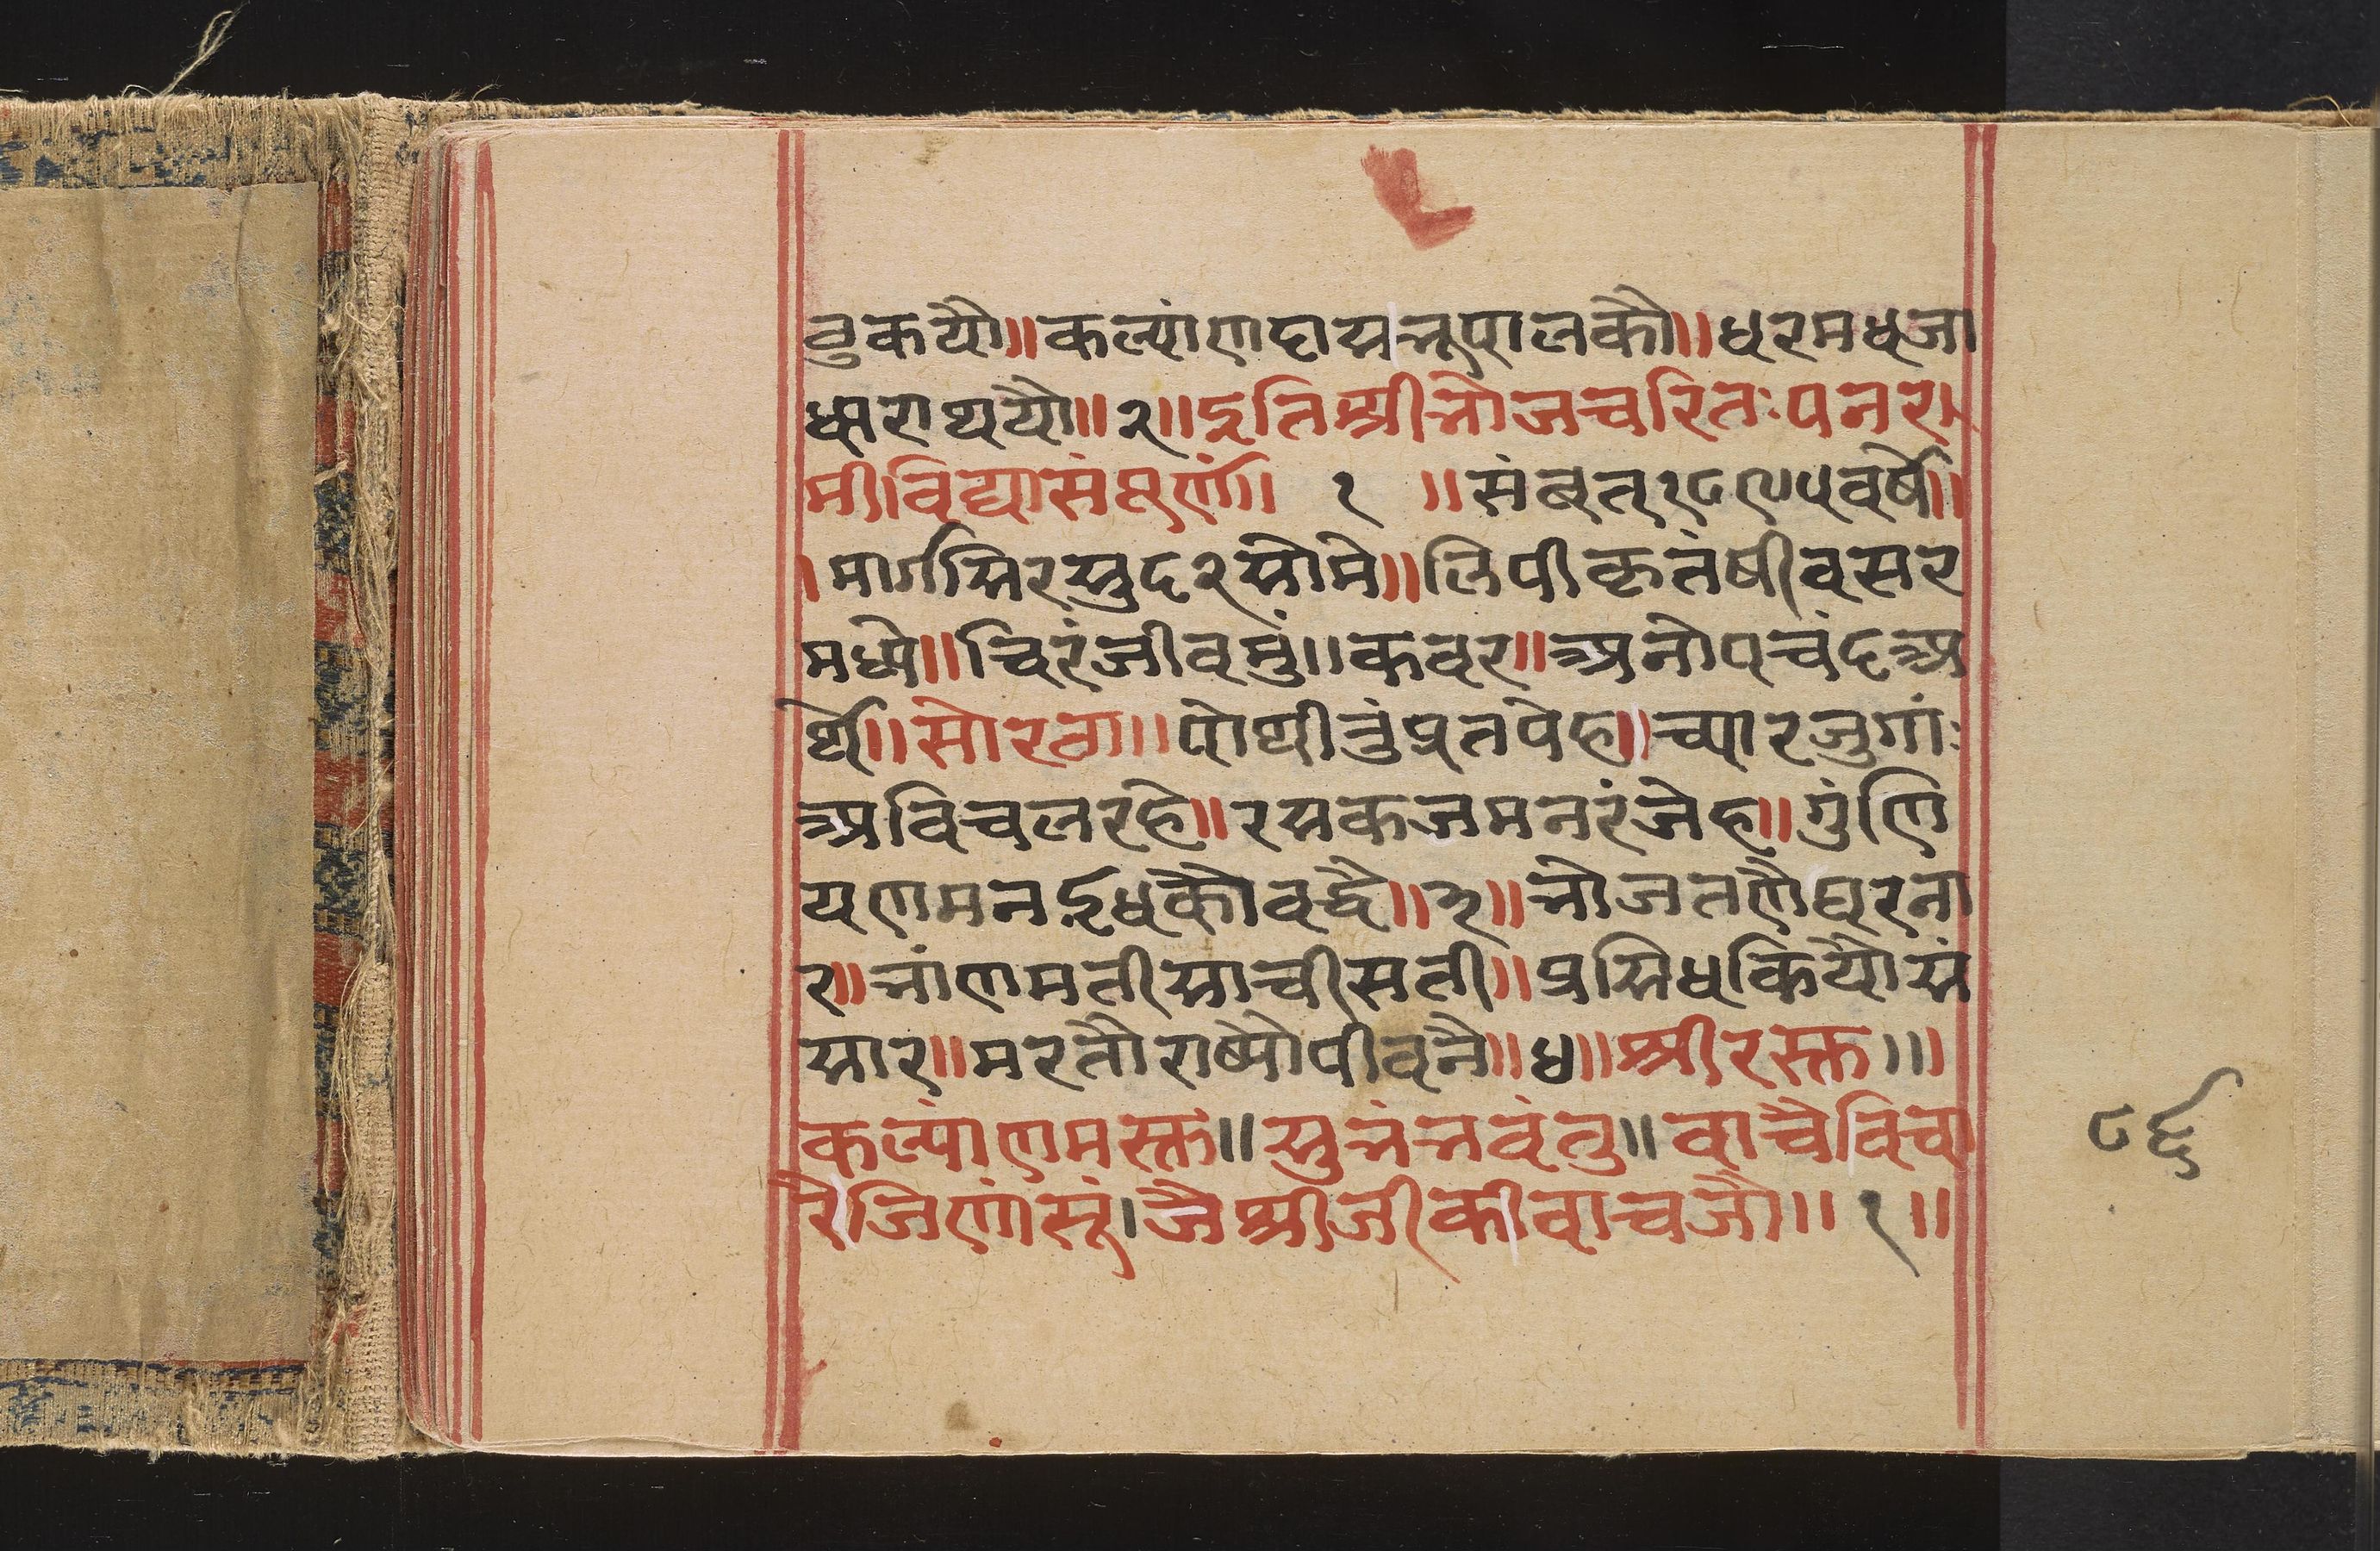 वुकयौ॥कल्यांणदासभूपालकौ॥धरमधजा
धाराथयौ॥२॥इतिश्रीभोजचरितःपनरा
मीविद्यासंपूर्णं। १ ॥संबत्१८९५वर्षे॥
।मार्गसिरसुद२सोमे॥लिपीकृतंषीवसर
मध्ये॥चिरंजीवमुं॥कवर॥अनोपचंदअ
र्थे॥सोरठा॥पोथीनुंप्रतपेह॥च्यारजुगां:
अविचलरहे॥रसकजमनरंजेह॥गुंणि
यणमनईधकौवद्वै॥३॥भोजतणैघरना
र॥भांणमतीसाचीसती॥प्रसिधकियौसं
सार॥मरतौराष्योपीवनै॥४॥श्रीरस्तु॥।
कल्यांणमस्तु॥सुभंभवंतु॥वाचैविचा
रैजिणांसूं।जैश्रीजीकीवाचजौ॥१॥
८६